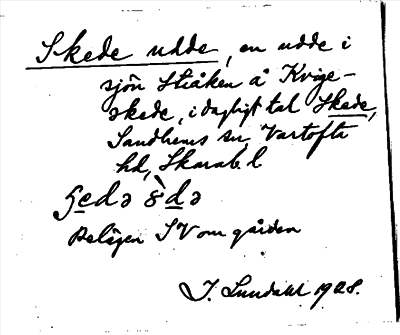 Skede udde, en udde i
sjön Stråken å Kvige-
skede, i dagligt tal Skede,
Sandhems sn, Vartofta
hd, Skarab. l
Belägen SV om gården
I. Lundahl 1928.